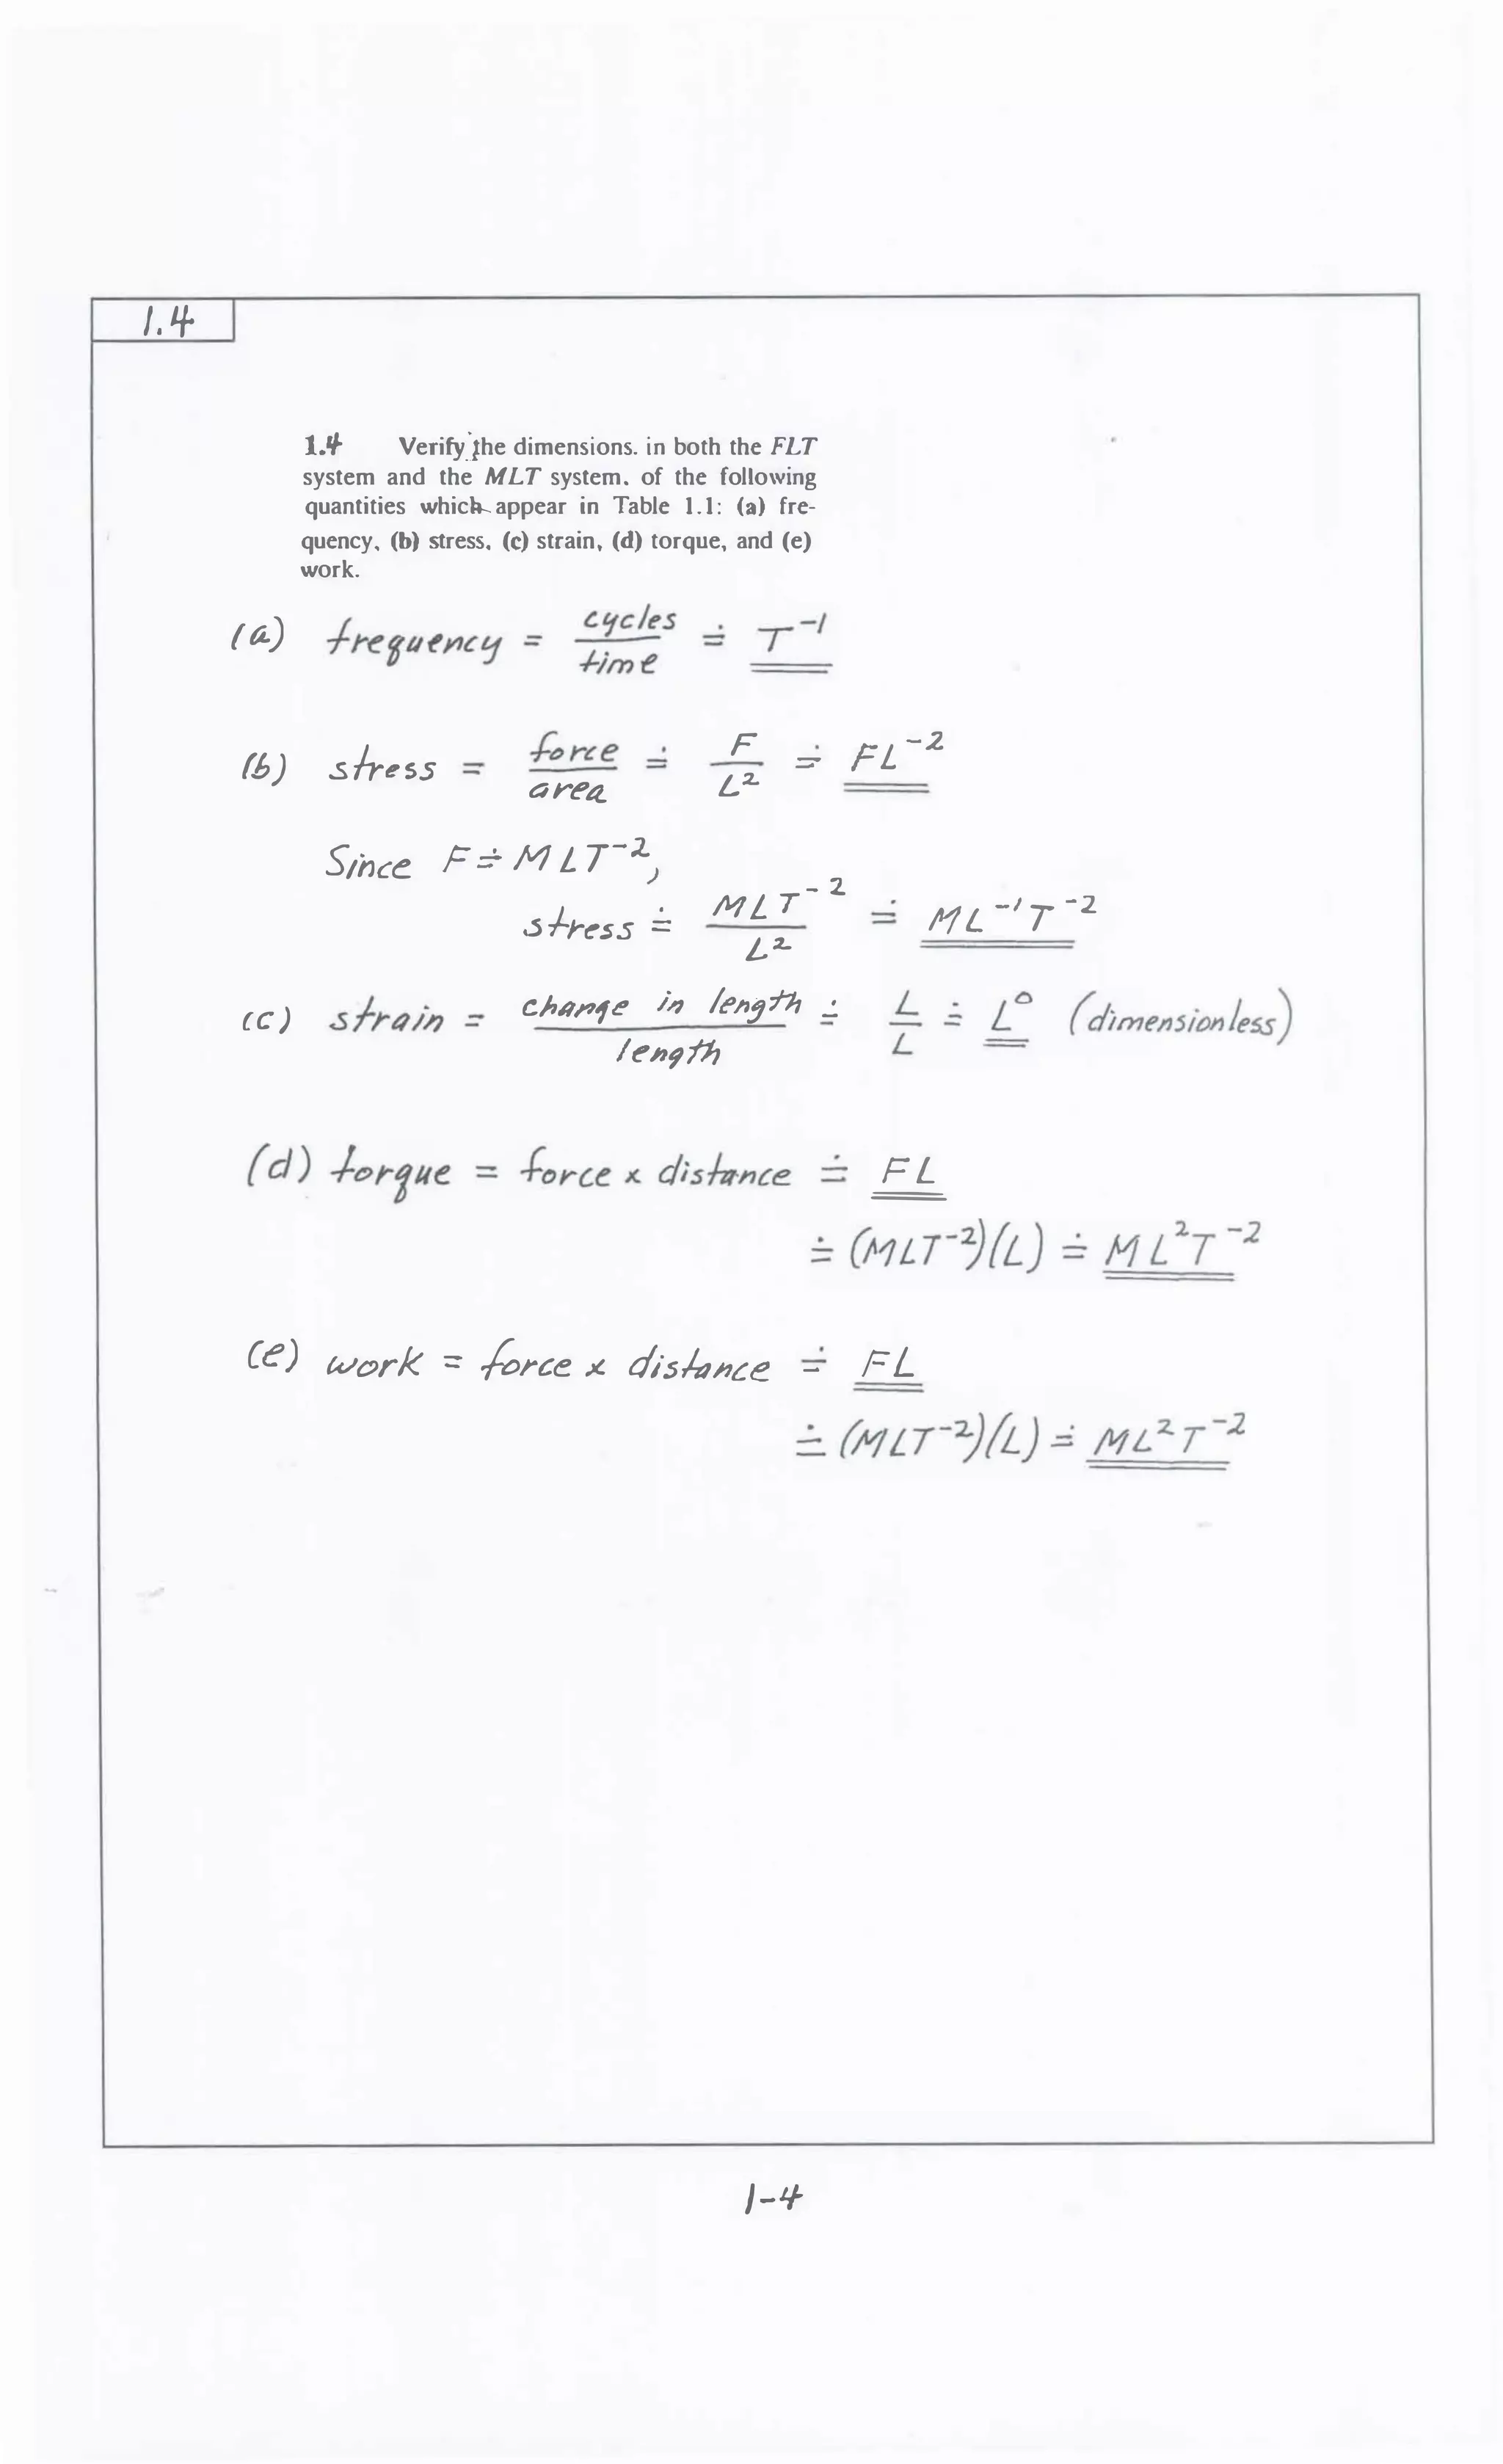 1.4
1.4 Verify the dimensions. in both the FLT
system and the MLT system. of the following
quantities which appear in Table 1.1: (a) fre-
quency, (b) stress, (c) strain, (d) torque, and (e)
work.
(a) frequency = cycles/time ≐ T⁻¹
(b) stress = force/area ≐ F/L² ≐ FL⁻²
Since F ≐ MLT⁻²,
stress ≐ MLT⁻²/L² ≐ ML⁻¹T⁻²
(c) strain = change in length/length ≐ L/L ≐ L⁰ (dimensionless)
(d) torque = force x distance ≐ FL
≐ (MLT⁻²)(L) ≐ ML²T⁻²
(e) work = force x distance ≐ FL
≐ (MLT⁻²)(L) ≐ ML²T⁻²
1-4